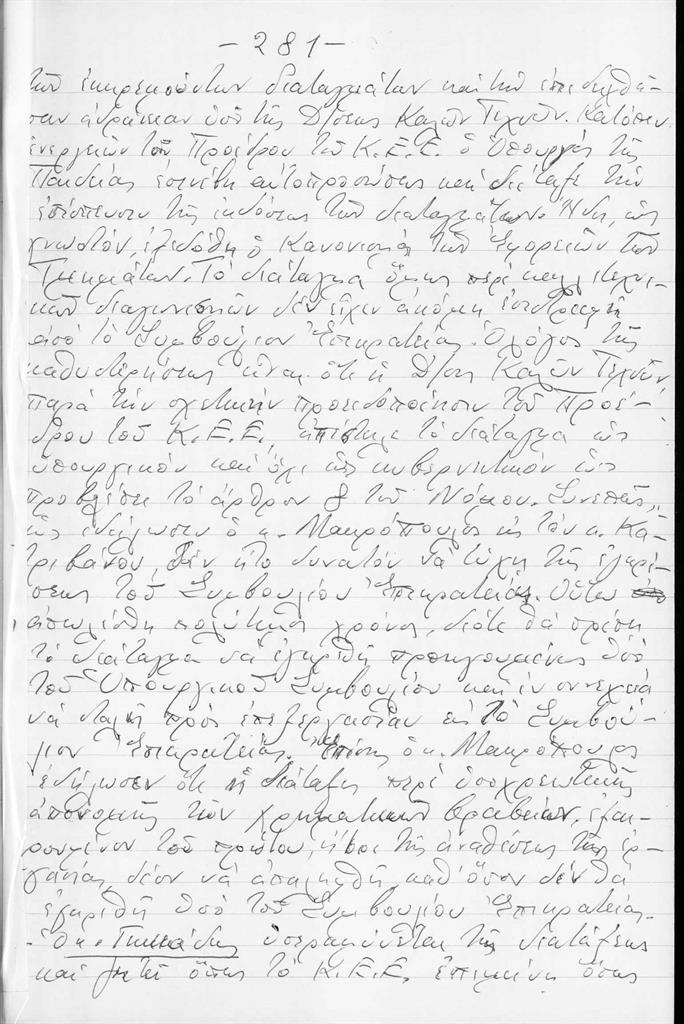 - 281 -
τῶν ἐκκρεμούντων διαταγμάτων καὶ τὴν ἐπιδειχθεῖ-
σαν ἀδράνειαν ὑπὸ τῆς Δ/σεως Καλῶν Τεχνῶν. Κατόπιν
ἐνεργειῶν τοῦ Προέδρου τοῦ Κ.Ε.Ε. ὁ Ὑπουργὸς τῆς
Παιδείας ἐπενέβη αὐτοπροσώπως καὶ διέταξε τὴν
ἐπίσπευσιν τῆς ἐκδόσεως τῶν διαταγμάτων. Ἤδη, ὡς
γνωστόν, ἐξεδόθη ὁ Κανονισμὸς τῶν Ἐφορειῶν τῶν
Τμημάτων. Τὸ διάταγμα ὅμως περὶ καλλιτεχνι-
κῶν διαγωνισμῶν δὲν εἶχεν ἀκόμη ἐπιστραφῆ
ἀπὸ τὸ Συμβούλιον Ἐπικρατείας. Ὁ λόγος τῆς
καθυστερήσεως εἶναι ὅτι ἡ Δ/σις Καλῶν Τεχνῶν,
παρὰ τὴν σχετικὴν προειδοποίησιν τοῦ Προέ-
δρου τοῦ Κ.Ε.Ε., ἀπέστειλε τὸ διάταγμα ὡς
ὑπουργικὸν καὶ ὄχι ὡς κυβερνητικὸν ὡς
προβλέπει τὸ ἄρθρον 8 τοῦ Νόμου. Συνεπῶς,
ὡς ἐδήλωσεν ὁ κ. Μακρόπουλος εἰς τὸν κ. Κα-
τριβάνον, δὲν ἦτο δυνατὸν νὰ τύχῃ τῆς ἐγκρί-
σεως τοῦ Συμβουλίου Ἐπικρατείας. Οὕτω
ἀπωλέσθη πολύτιμος χρόνος, διότι θὰ πρέπῃ
τὸ διάταγμα νὰ ἐγκριθῇ προηγουμένως ὑπὸ
τοῦ Ὑπουργικοῦ Συμβουλίου καὶ ἐν συνεχείᾳ
νὰ σταλῇ πρὸς ἐπεξεργασίαν εἰς τὸ Συμβού-
λιον Ἐπικρατείας. Ἐπίσης ὁ κ. Μακρόπουλος
ἐδήλωσεν ὅτι ἡ διάταξις περὶ ὑποχρεωτικῆς
ἀπονομῆς τῶν χρηματικῶν βραβείων, ἐξαι-
ρουμένου τοῦ πρώτου, ἤτοι τῆς ἀναθέσεως τῆς ἐρ-
γασίας, δέον νὰ ἀπαλειφθῇ, καθ' ὅσον δὲν θὰ
ἐγκριθῇ ὑπὸ τοῦ Συμβουλίου Ἐπικρατείας.
Ὁ κ. ὑπεραμύνεται τῆς διατάξεως
καὶ ζητεῖ ὅπως τὸ Κ.Ε.Ε. ἐπιμείνῃ ὅπως